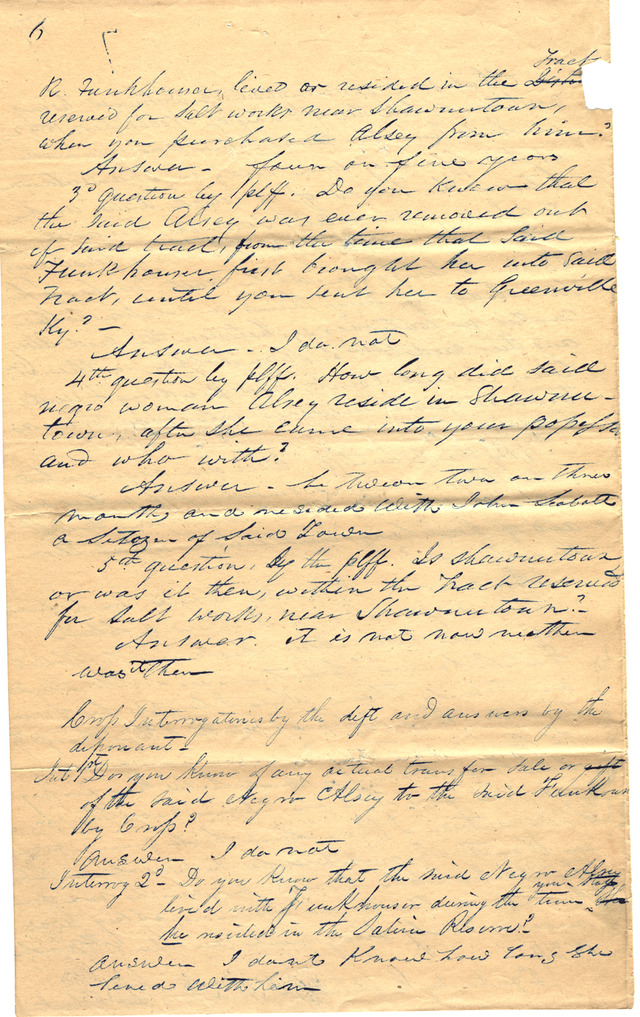 6
Tract
R. Funkhouser, lived or resided in the
reserved for salt works near Shawneetown,
when you purchased Alsey from him?
Answer - four or five years
3d question by plff. Do you Know that
the said Alsey was ever removed out
of said tract, from the time that said
Funkhouser first brought her into said
Tract, until you sent her to Greenville
Ky? -
Answer - I do not
4th question by plff. How long did said
negro woman Alsey reside in Shawnee-
town, after she came into your possession
and who with?
Answer - be tween two or three
months and resided with John
a Sitozen of Said Town
5th question, By the plff. Is Shawneetown,
or was it then, within the Tract reserved
for salt works, near Shawneetown?
Answer. it is not now neither
was it then
Cross Interrogatories by the deft and answers by the
deponant -
Int 1st Do you know of any actual transfer sale or gift
of the said Negro Alsey to the said Funkhouser
by Cross?
Answer I do not
Interrog 2d - Do you Know that the said Negro Alsey
lived with Funkhouser during the time
he resided in the Saline Reserve?
Answer I dont Know how long She
lived with him